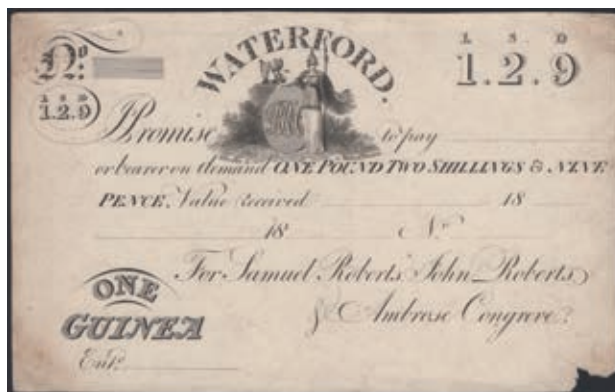 No.
WATERFORD.
L S D
1.2.9
L S D
1.2.9
Promise to pay
or bearer on demand ONE POUND TWO SHILLINGS & NINE
PENCE, Value received 18
18 No.
For Samuel Roberts John Roberts
& Ambrose Congreve.
ONE
GUINEA
Entd.